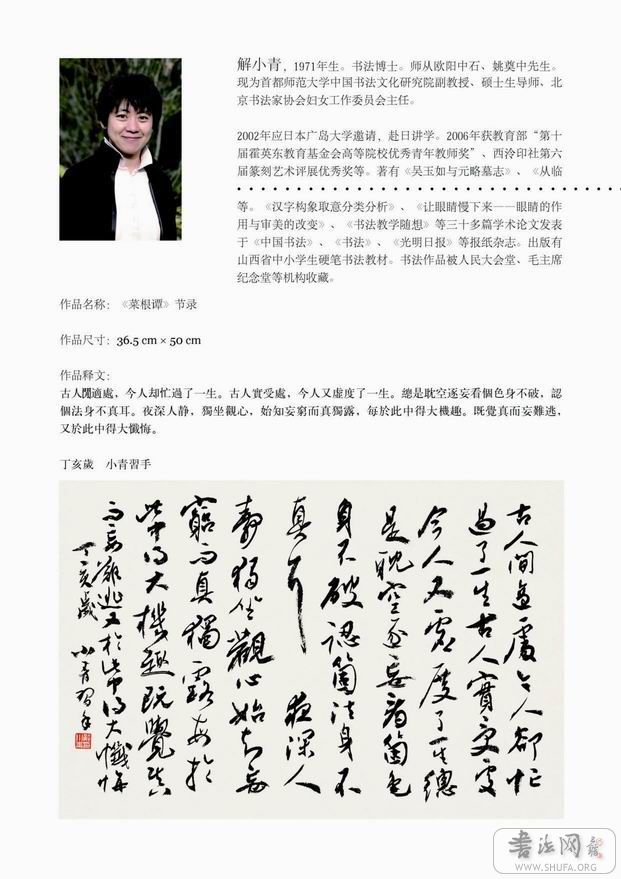 解小青，1971年生。书法博士。师从欧阳中石、姚奠中先生。
现为首都师范大学中国书法文化研究院副教授、硕士生导师、北
京书法家协会妇女工作委员会主任。
2002年应日本广岛大学邀请，赴日讲学。2006年获教育部“第十
届霍英东教育基金会高等院校优秀青年教师奖”、西泠印社第六
届篆刻艺术评展优秀奖等。著有《吴玉如与元略墓志》、《从临
等。《汉字构象取意分类分析》、《让眼睛慢下来——眼睛的作
用与审美的改变》、《书法教学随想》等三十多篇学术论文发表
于《中国书法》、《书法》、《光明日报》等报纸杂志。出版有
山西省中小学生硬笔书法教材。书法作品被人民大会堂、毛主席
纪念堂等机构收藏。
作品名称：《菜根谭》节录
作品尺寸：36.5 cm × 50 cm
作品释文：
古人閒適處，今人却忙過了一生。古人實受處，今人又虚度了一生。總是耽空逐妄看個色身不破，認
個法身不真耳。夜深人静，獨坐觀心，始知妄窮而真獨露，每於此中得大機趣。既覺真而妄難逃，
又於此中得大懺悔。
丁亥歲　小青習手
古人閒適處今人卻忙
過了一生古人實受處
今人又虚度了一生總
是耽空逐妄看箇色
身不破認箇法身不
真耳　夜深人
静獨坐觀心始知妄
窮而真獨露每於
此中得大機趣既覺真
而妄難逃又於此中得大懺悔
丁亥歲　小青習手
書法网
WWW.SHUFA.ORG